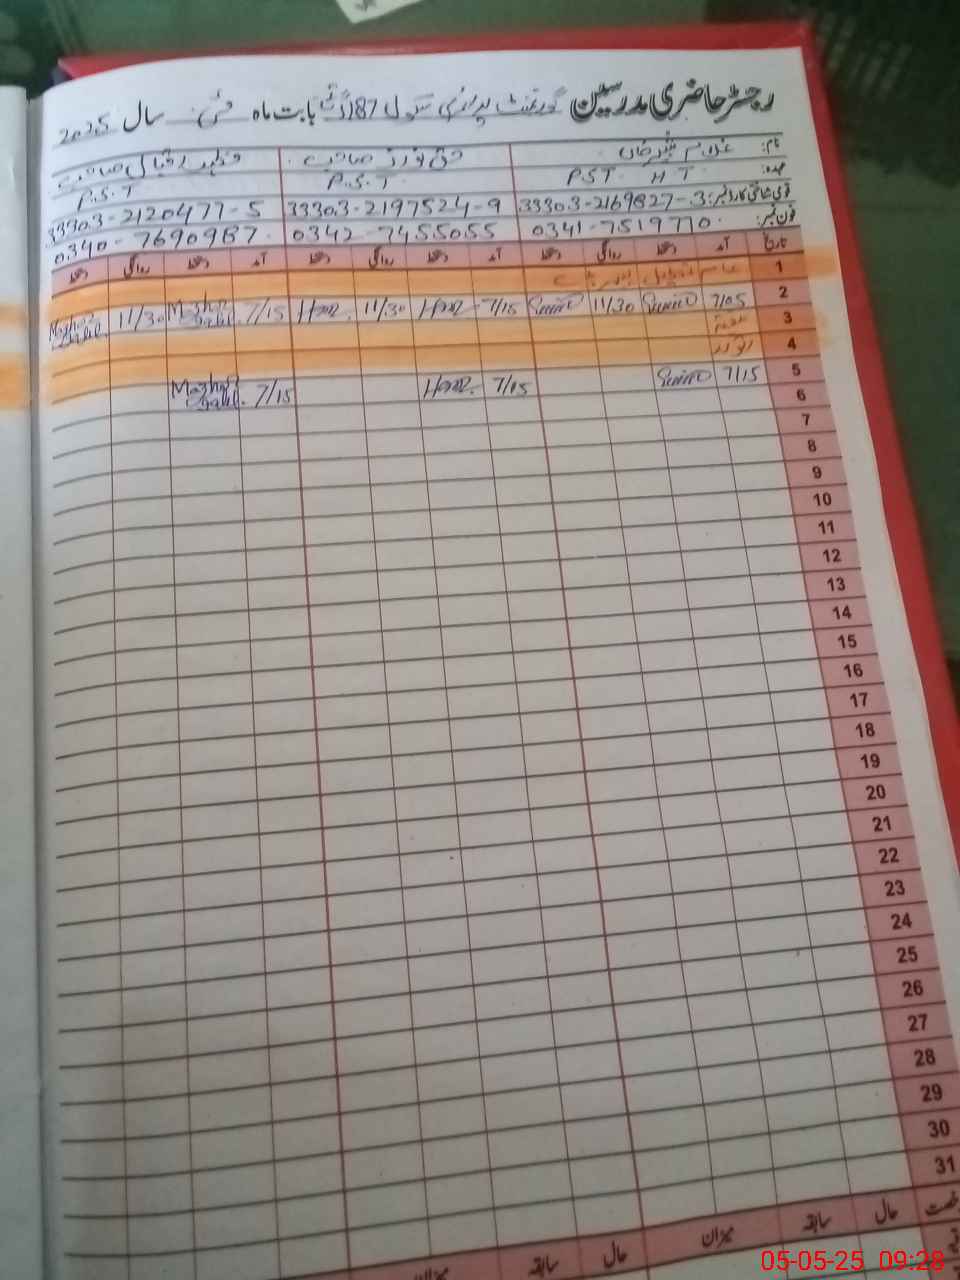 رجسٹر حاضری مدرسین گورنمنٹ پرائمری سکول 187 بابت ماہ مئی سال 2025
نام: غلام شبیر خان حق نواز صاحب مظہر اقبال صاحب
عہدہ: PST HT P.S.T P.S.T
قومی شناختی کارڈ نمبر: 33303-2169827-3 33303-2197524-9 33303-2120477-5
فون نمبر: 0341-7519770 0342-7455055 0340-7690987
تاریخ آمد دستخط روانگی دستخط آمد دستخط روانگی دستخط آمد دستخط روانگی دستخط
1 عام تعطیل
2 7/05 11/30 7/15 11/30 7/15 Mazhar Iqbal 11/30 Mazhar Iqbal
3 ہفتہ
4 اتوار
5 7/15 7/15 7/15 Mazhar Iqbal
6
7
8
9
10
11
12
13
14
15
16
17
18
19
20
21
22
23
24
25
26
27
28
29
30
31
رخصت حال سابقہ میزان حال سابقہ میزان
05-05-25 09:28